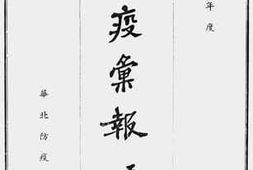 年度
疫彙報
華北防疫